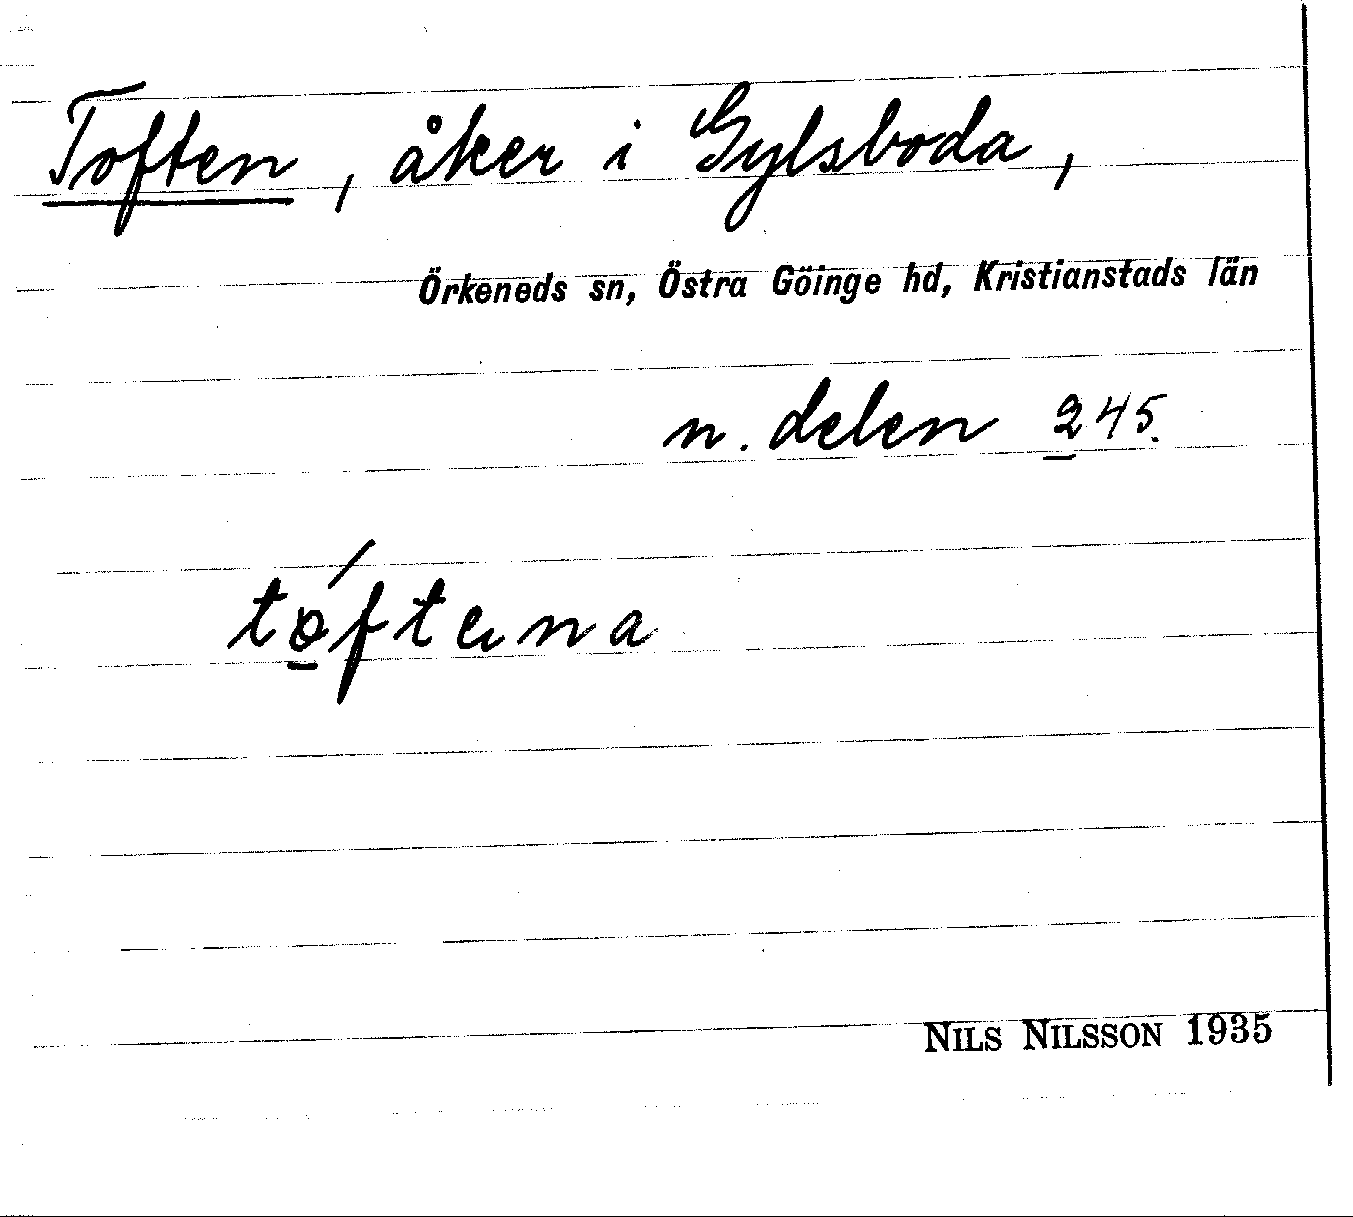 Toften, åker i Gylsboda,
Örkeneds sn, Östra Göinge hd, Kristianstads län
n. delen 245.
NILS NILSSON 1935